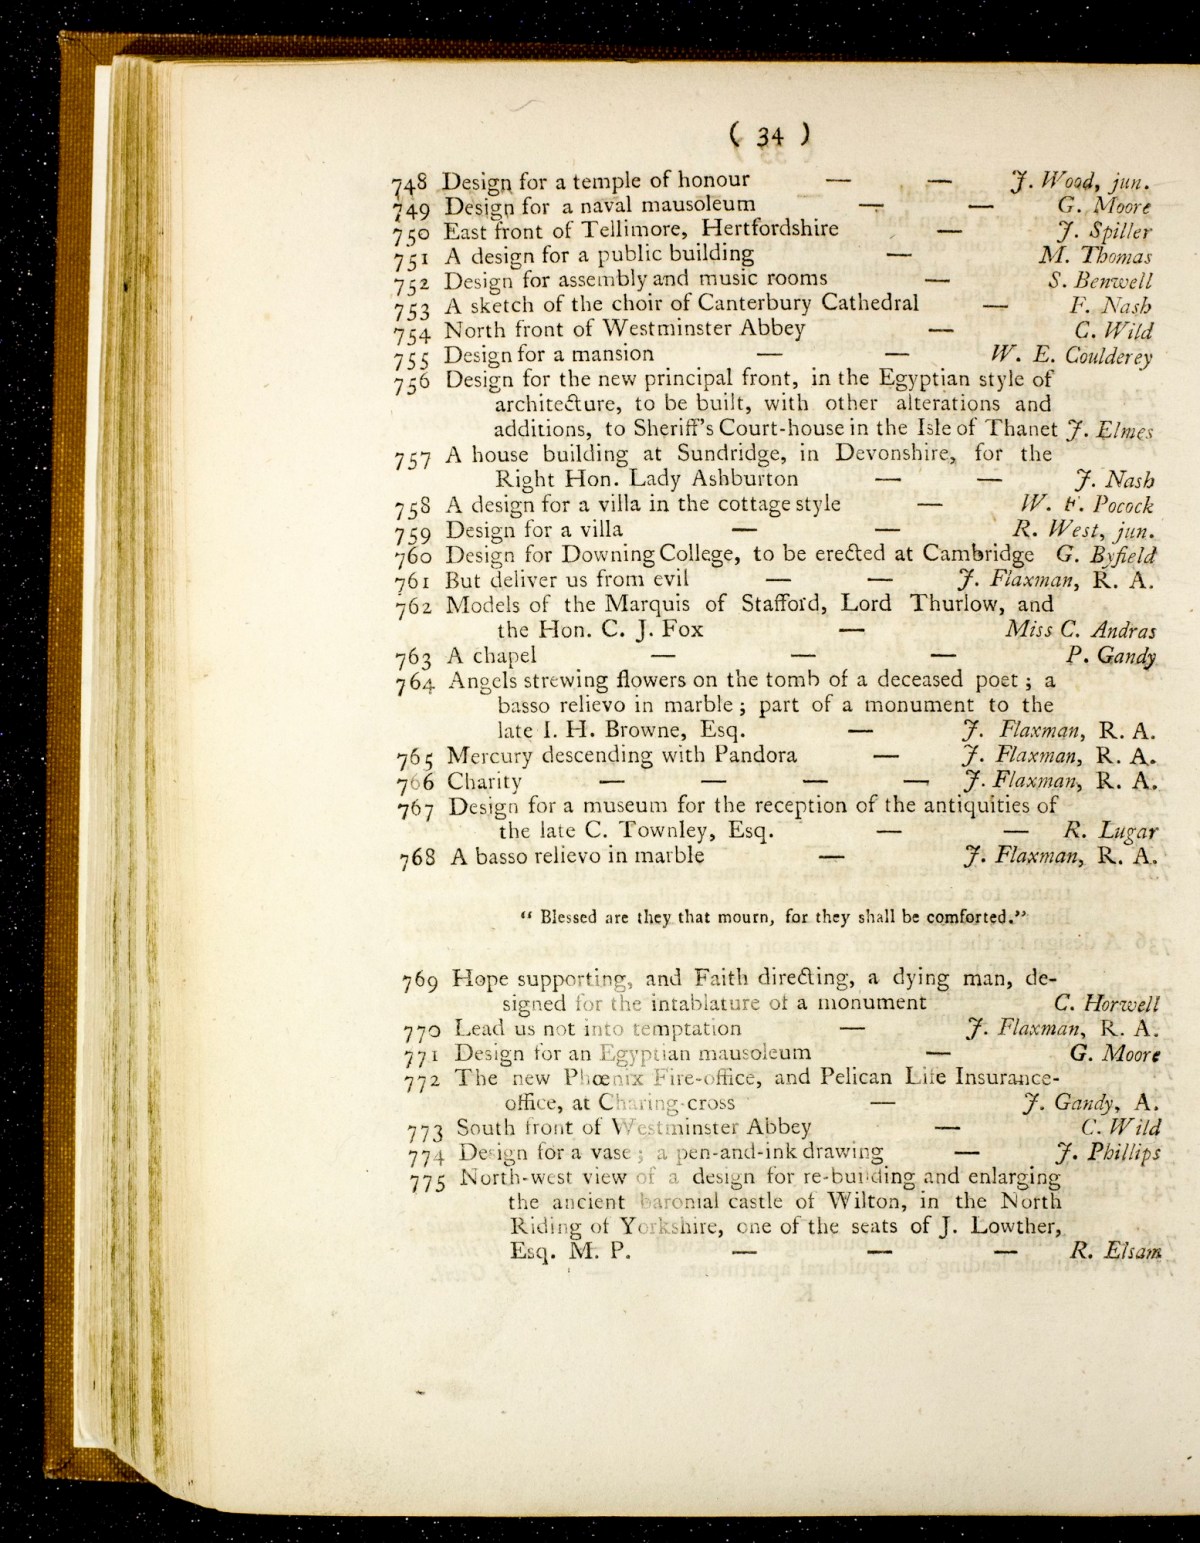 ( 34 )
748 Design for a temple of honour — — J. Wood, jun.
749 Design for a naval mausoleum — — G. Moore
750 East front of Tellimore, Hertfordshire — J. Spiller
751 A design for a public building — M. Thomas
752 Design for assembly and music rooms — S. Benwell
753 A sketch of the choir of Canterbury Cathedral — F. Nash
754 North front of Westminster Abbey — C. Wild
755 Design for a mansion — — W. E. Coulderey
756 Design for the new principal front, in the Egyptian style of
architecture, to be built, with other alterations and
additions, to Sheriff's Court-house in the Isle of Thanet J. Elmes
757 A house building at Sundridge, in Devonshire, for the
Right Hon. Lady Ashburton — — J. Nash
758 A design for a villa in the cottage style — W. F. Pocock
759 Design for a villa — — R. West, jun.
760 Design for Downing College, to be erected at Cambridge G. Byfield
761 But deliver us from evil — — J. Flaxman, R. A.
762 Models of the Marquis of Stafford, Lord Thurlow, and
the Hon. C. J. Fox — Miss C. Andras
763 A chapel — — — P. Gandy
764 Angels strewing flowers on the tomb of a deceased poet ; a
basso relievo in marble ; part of a monument to the
late I. H. Browne, Esq. — J. Flaxman, R. A.
765 Mercury descending with Pandora — J. Flaxman, R. A.
766 Charity — — — — J. Flaxman, R. A.
767 Design for a museum for the reception of the antiquities of
the late C. Townley, Esq. — — R. Lugar
768 A basso relievo in marble — J. Flaxman, R. A.
“ Blessed are they that mourn, for they shall be comforted.”
769 Hope supporting, and Faith directing, a dying man, de-
signed for the intablature of a monument C. Horwell
770 Lead us not into temptation — J. Flaxman, R. A.
771 Design for an Egyptian mausoleum — G. Moore
772 The new Phœnix Fire-office, and Pelican Life Insurance-
office, at Charing-cross — J. Gandy, A.
773 South front of Westminster Abbey — C. Wild
774 Design for a vase ; a pen-and-ink drawing — J. Phillips
775 North-west view of a design for re-building and enlarging
the ancient baronial castle of Wilton, in the North
Riding of Yorkshire, one of the seats of J. Lowther,
Esq. M. P. — — — R. Elsam